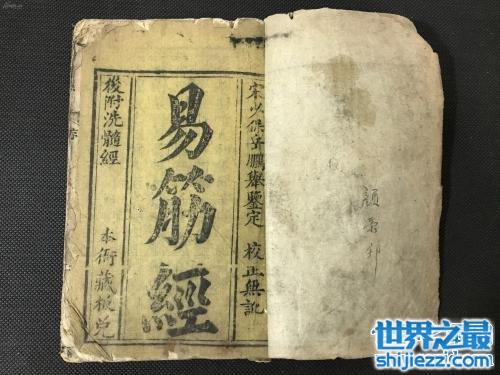 宋少保岳鵬舉鑒定 校正無訛
易筋經
後附洗髓經
本衙藏板
世界之最
shijiezz1.com